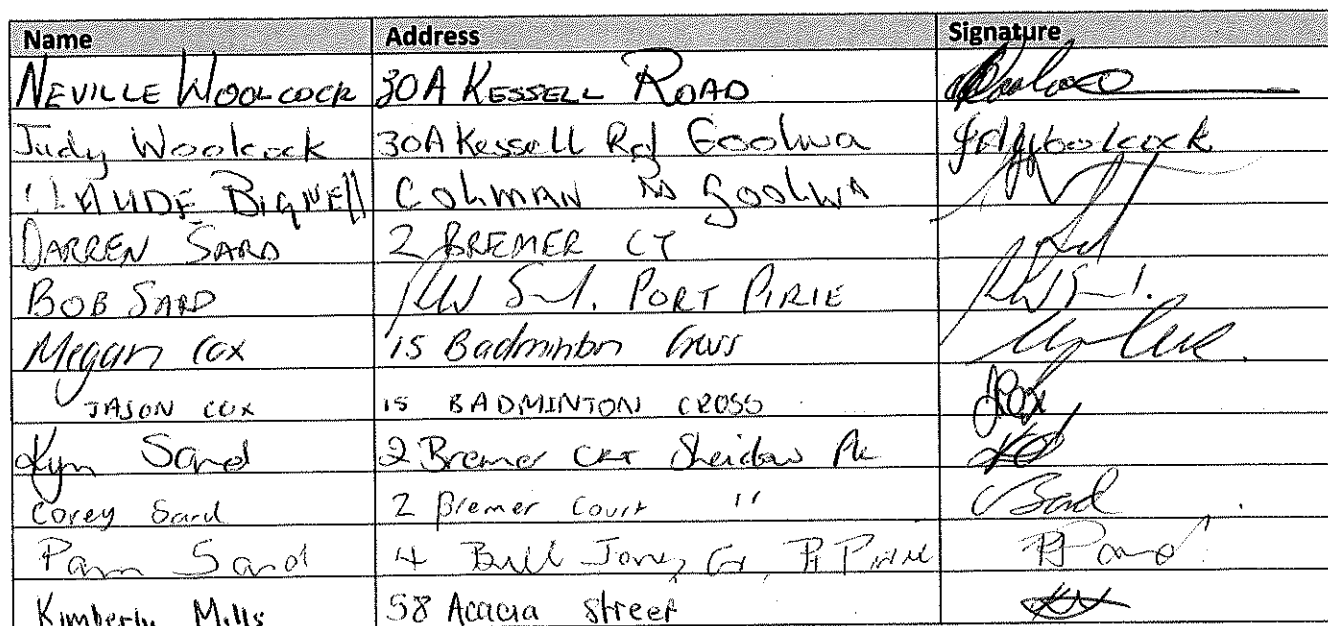 Name Address Signature
NEVILLE WOOLCOCK 30A KESSELL ROAD
Judy Woolcock 30A Kessell Rd Goolwa JMWoolcock
CLAUDE BIGNELL COLMAN RD GOOLWA
DARREN SARD 2 BREMER CT
BOB SARD PORT PIRIE
Megan Cox 15 Badminton Cross
JASON COX 15 BADMINTON CROSS JCox
Kym Sard 2 Bremer CRT Sheidow Pk
Corey Sard 2 Bremer Court "
Pam Sard 4 Bill Jones Crt, Pt Pirie
Kimberly Mills 58 Acacia Street